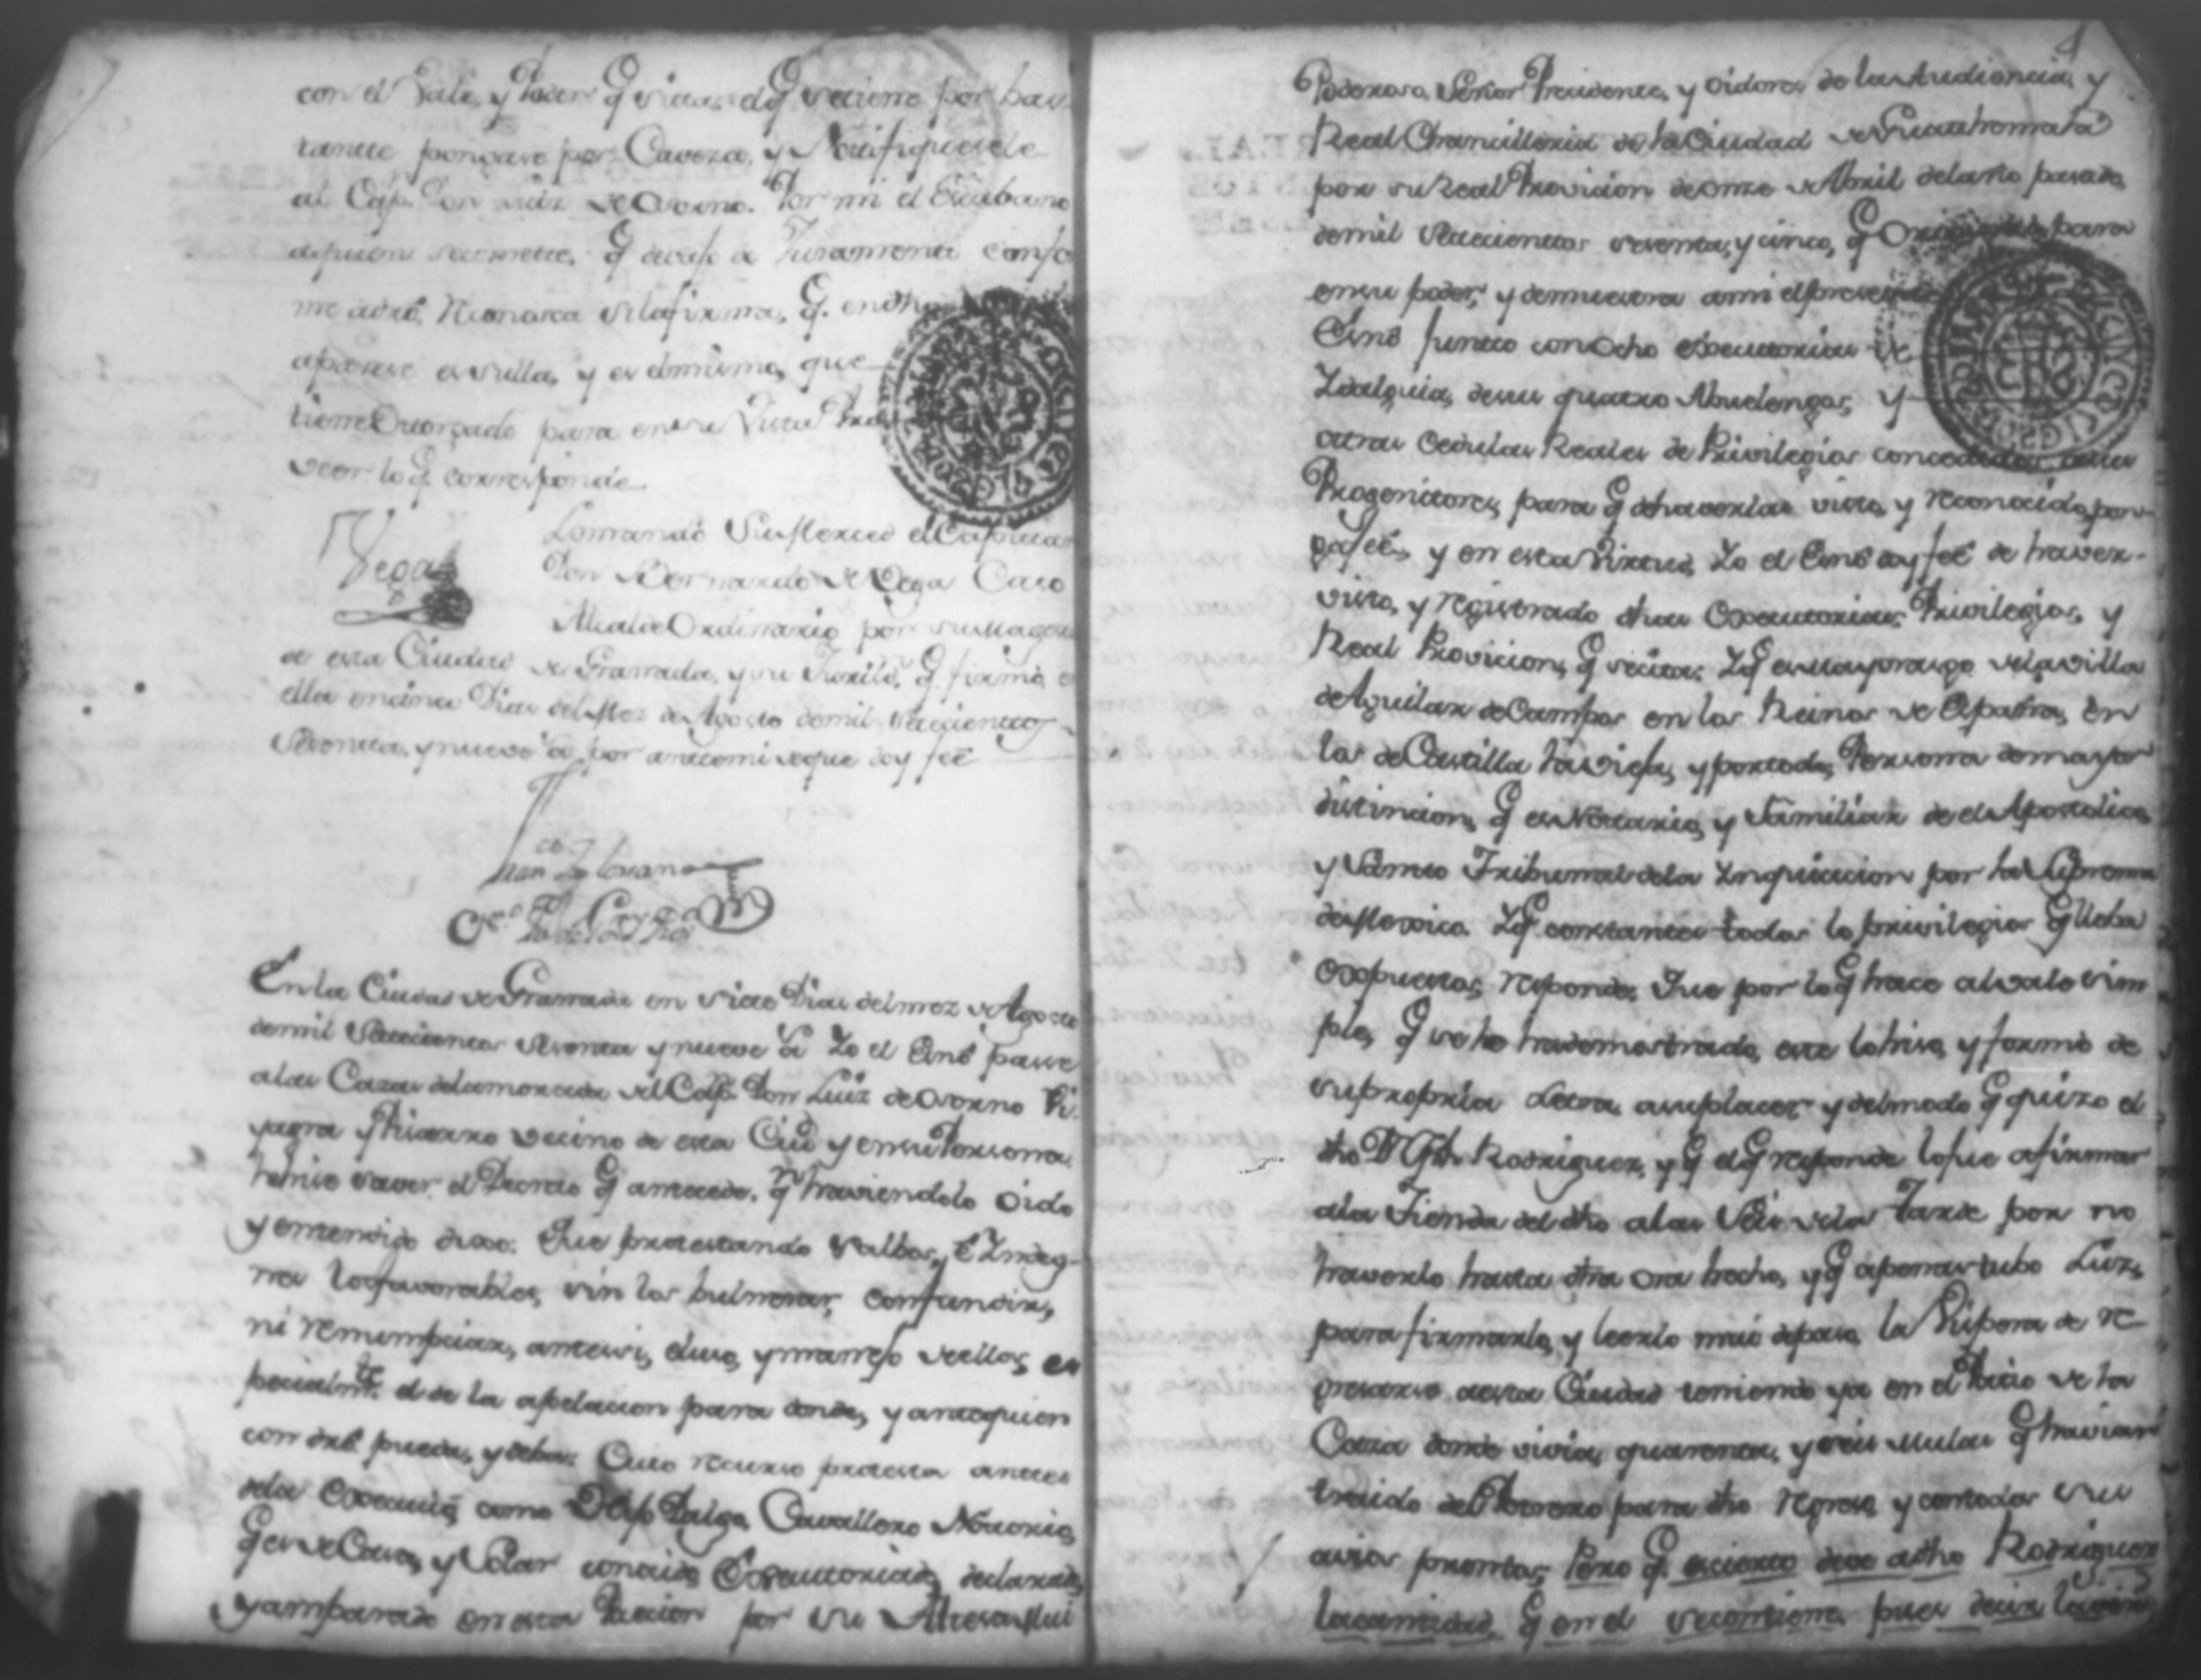 con el Vale, y Poder q̃ situa, el q̃ se tiene por bas-
tante pongase por Caveza, y Notifiquesele
al Cap.ⁿ Don Luiz de Osorno. Por mi el Escribano
aquien se comete, q̃ devajo de Juramento confor
me adro. reconosca si la firma, q̃ en dho
aparece es sulla, y es el mismo, que
tiene Otorgado para en su Vista Pro
veer lo q̃ corresponde
Vega
Lo mando Su Merced el Capitan
Don Bernardo de Vega Caro
Alcalde Ordinario por su Mag.d
de esta Ciudad de Granada, y su Jurisd.n q̃ firmó en
ella en cinco Dias del Mez de Agosto de mil setecientos
Setenta, y nueve a.s por antemi de que doy feé
En la Ciudad de Granada en siete Dias del mez de Agosto
de mil Setecientos Setenta y nueve a.s Yo el Esno. passe
a las Cazas de la morada del Cap.n Don Luiz de Osorno Vi
yagra y Pizarro vecino de esta Ciu.d y en su Persona
le hise saver el Decreto q̃ antecede, q̃ haviendolo oido
y entendido dixo: Que protestando valerse, é Integ-
ra lo favorable, sin los bulnerar, confundir,
ni renumpciar, antes si, el uso, y manejo de ellos, es
pecialm.te el de la apelacion para donde, y ante quien
con dro. pueda, y deba: Cuio recurso protesta antes
de la Execuciõ, como Ydalgo, Cavallero Notorio,
q̃ es de Casa, y Solar conocido Executoriado, declarado,
y amparado en esta Posecion por su Alteza, Mui
4
Poderoso, Señor Precidente, y Oidores de la Audiencia, y
Real Chancilleria de la Ciudad de Guathemala
por su Real Provicion de onze de Abril del año pasado
de mil setecientos setenta, y cinco, q̃ Original para
en su poder, y demuestra a mi el presente
Esno. junto con Ocho executorias de
Ydalguia, de sus quatro Abuelengos, y
otras Cedulas Reales de Privilegios concedidos a sus
Progenitores, para q̃ de haverlas visto, y reconocido, pon
ga feé, y en esta virtud, Yo el Esno. doy feé de haver
visto, y registrado dhas Executorias, Privilegios, y
Real Provicion, q̃ se cita: Y q̃ es Mayorazgo de la Villa
de Aguilar de Campos en los Reinos de España, en
los de Castilla la vieja, y por todo, Persona de mayor
distincion, q̃ es Notario, y Familiar de el Apostolico,
y Santo Tribunal de la Inquicicion por la Suprema
de Mexico. Y q̃ constantes todos lo privilegios q̃ lleba
expuestos, responde, Que por lo q̃ hace al vale sim
ple, q̃ se le ha demostrado, este lo hiso, y formó de
su propria Letra, a su placer y del modo q̃ quizo el
dho D.n Rodriguez, y q̃ el q̃ responde lo fue a firmar
a la Tienda del dho a las Seis de la Tarde por no
haverlo hasta dha ora hecho, y q̃ apenas tubo Luz,
para firmarlo, y leerlo mui depaso, la Vispera de re-
gresarse a esta Ciudad teniendo ya en el Patio de la
Caza donde vivia, quarenta, y seis Mulas q̃ havian
traido del Potrero para dho regreso, y con todos sus
avios promtos; Pero q̃ es cierto deve a dho Rodriguez
la cantidad, q̃ en el se contiene, pues decia